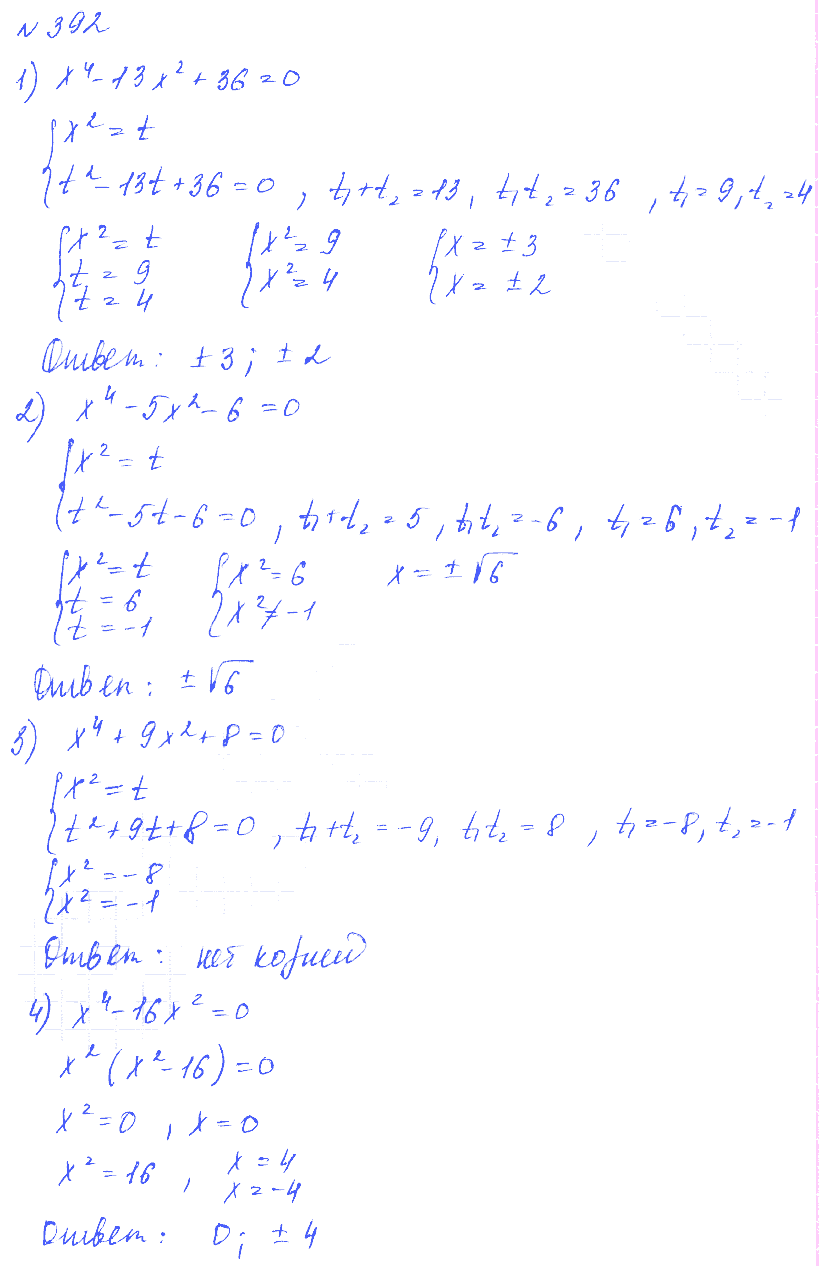 N 392
1) x⁴ - 13x² + 36 = 0
{x² = t
{t² - 13t + 36 = 0 , t₁ + t₂ = 13, t₁t₂ = 36 , t₁ = 9, t₂ = 4
{x² = t {x² = 9 {x = ±3
{t = 9 {x² = 4 {x = ±2
{t = 4
Ответ: ±3; ±2
2) x⁴ - 5x² - 6 = 0
{x² = t
{t² - 5t - 6 = 0 , t₁ + t₂ = 5, t₁t₂ = -6, t₁ = 6, t₂ = -1
{x² = t {x² = 6 x = ±√6
{t = 6 {x² ≠ -1
{t = -1
Ответ: ±√6
3) x⁴ + 9x² + 8 = 0
{x² = t
{t² + 9t + 8 = 0 , t₁ + t₂ = -9, t₁t₂ = 8 , t₁ = -8, t₂ = -1
{x² = -8
{x² = -1
Ответ: нет корней
4) x⁴ - 16x² = 0
x² (x² - 16) = 0
x² = 0 , x = 0
x² = 16 , x = 4
x = -4
Ответ: 0; ±4